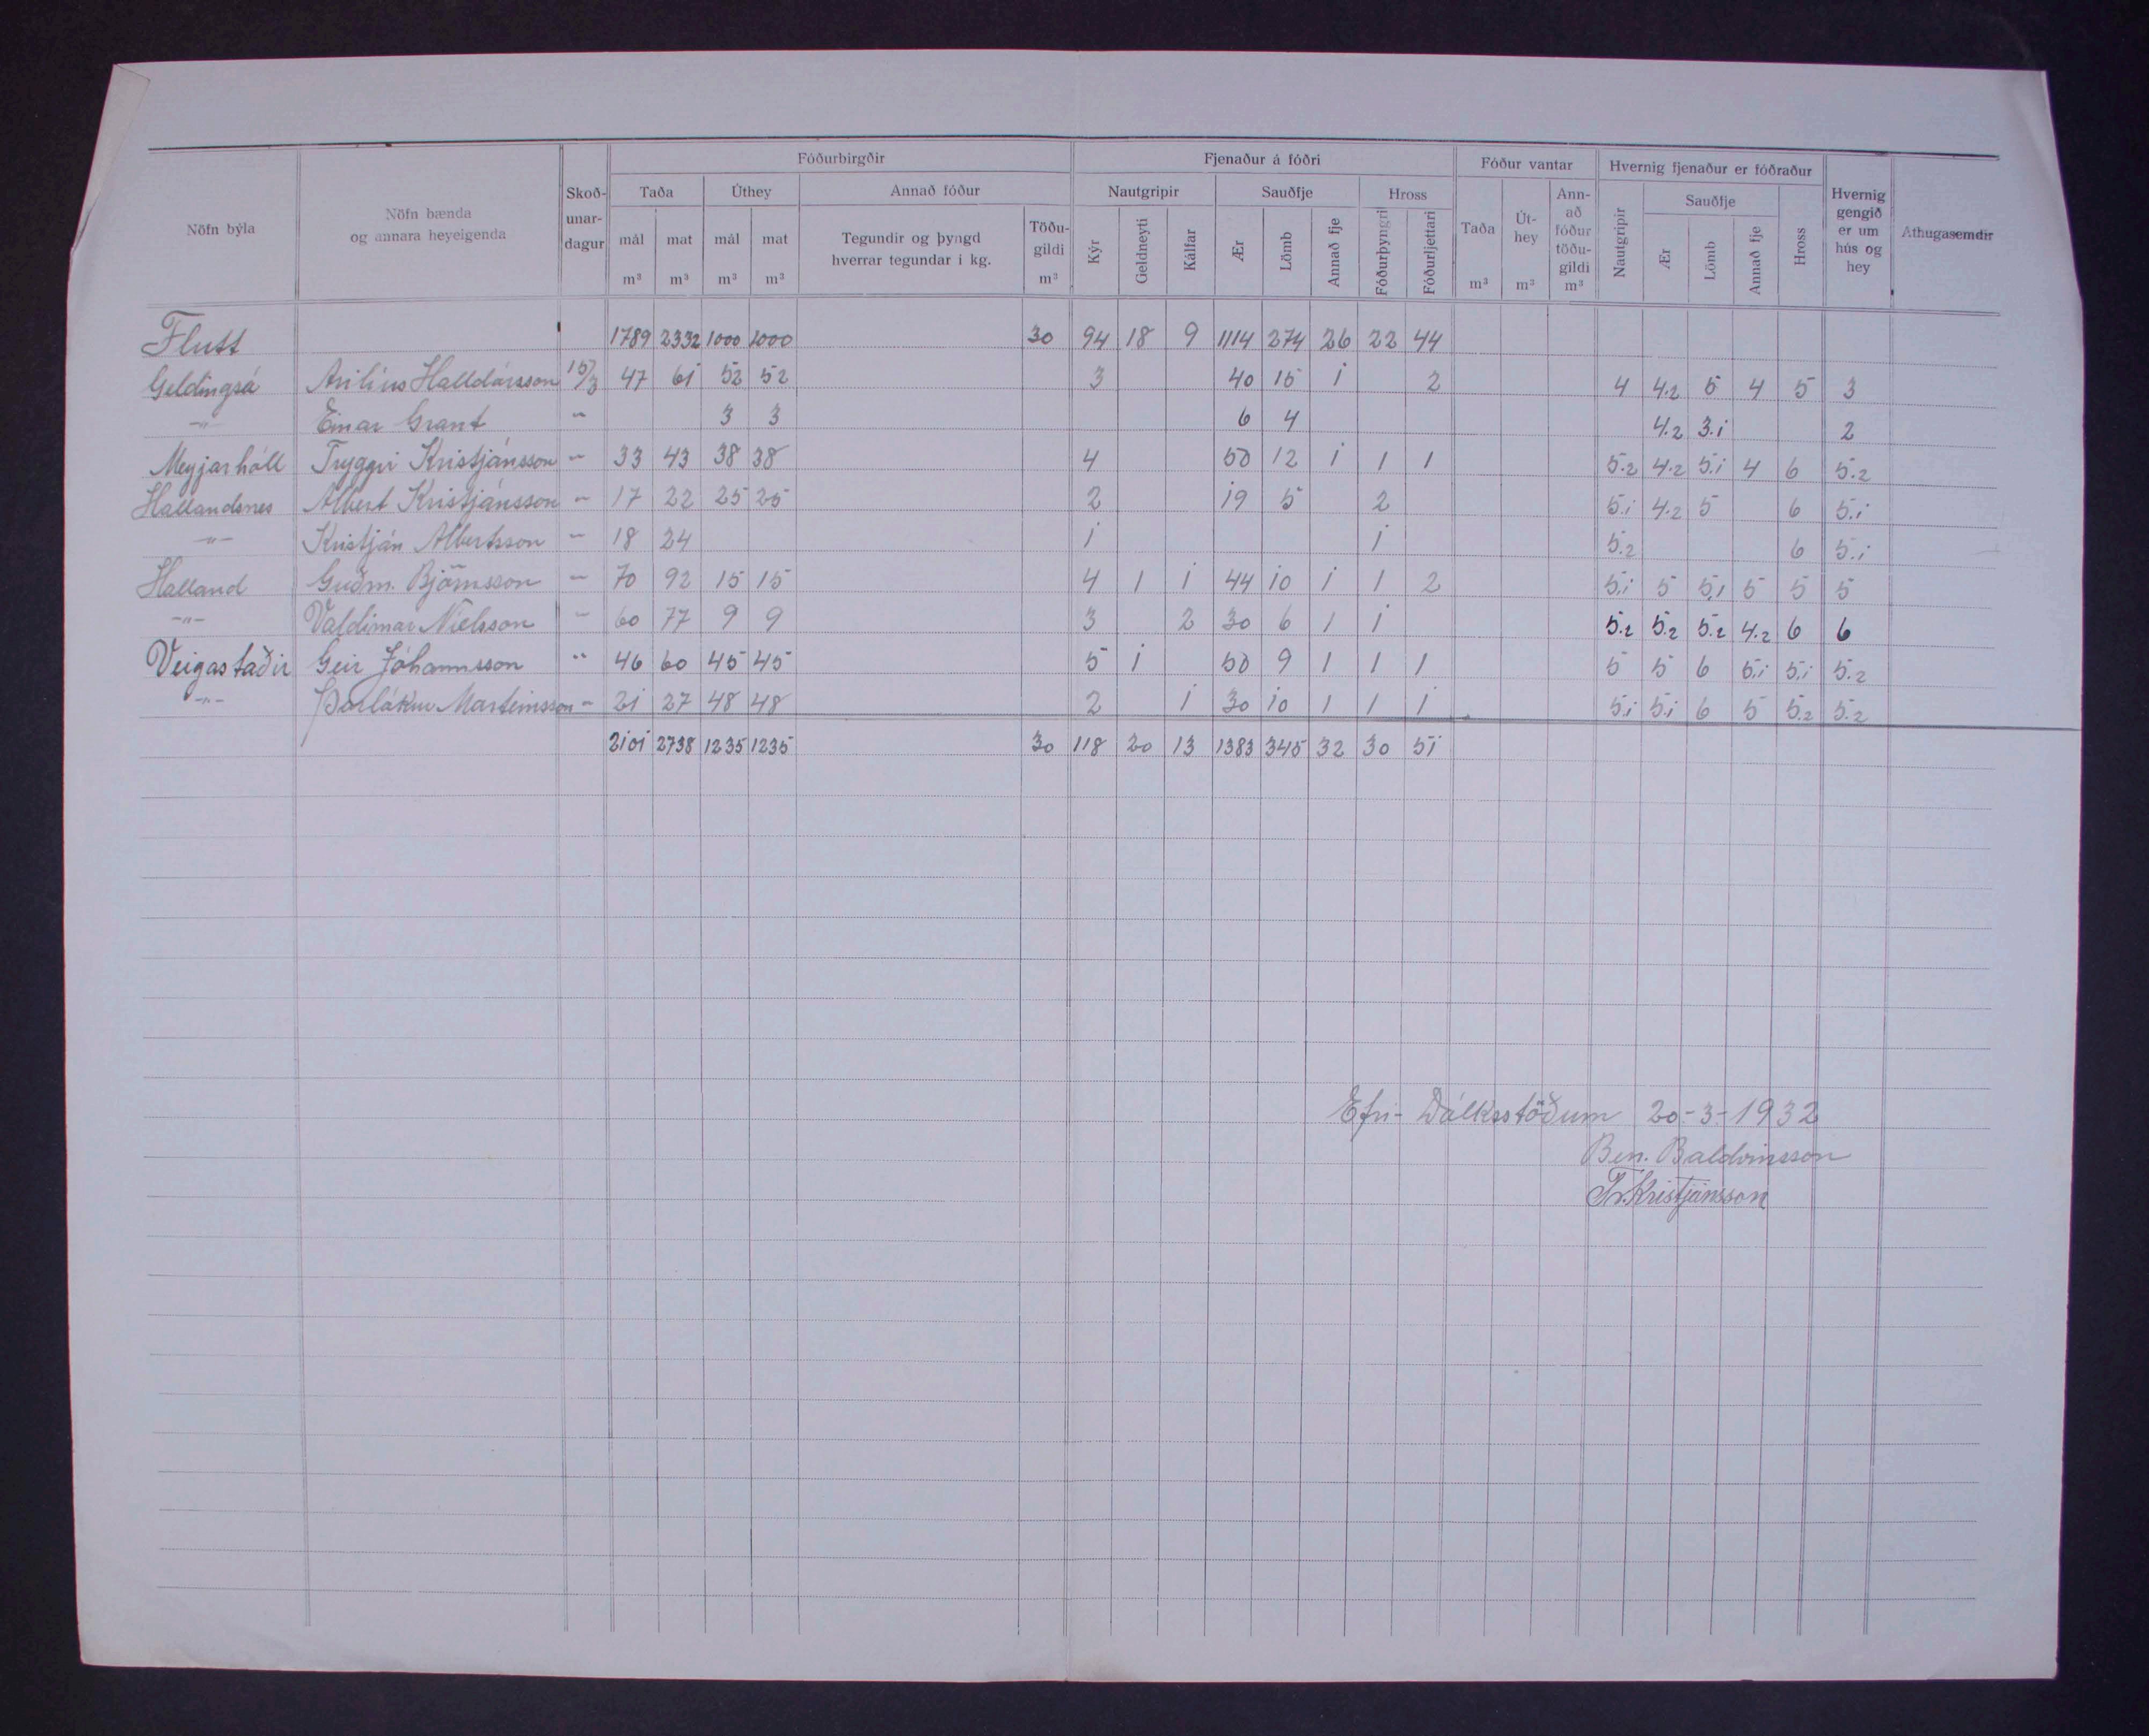 Fóðurbirgðir Fjenaður á fóðri Fóður vantar Hvernig fjenaður er fóðraður
Nöfn býla Nöfn bænda og annara heyeigenda Skoðunardagur Taða Úthey Annað fóður Nautgripir Sauðfje Hross Taða m³ Úthey m³ Annað fóður töðugildi m³ Nautgripir Sauðfje Hross Hvernig gengið er um hús og hey Athugasemdir
mál m³ mat m³ mál m³ mat m³ Tegundir og þyngd hverrar tegundar í kg. Töðugildi m³ Kýr Geldneyti Kálfar Ær Lömb Annað fje Fóðurþyngri Fóðurljettari Ær Lömb Annað fje
Flutt 1789 2332 1000 1000 30 94 18 9 1114 274 26 22 44
Geldingsá Axilíus Halldórsson 15/3 47 61 52 52 3 40 15 1 2 4 4.2 5 4 5 3
-"- Einar Grant - 3 3 6 4 4.2 3.1 2
Meyjarhóll Tryggvi Kristjánsson - 33 43 38 38 4 50 12 1 1 1 5.2 4.2 5.1 4 6 5.2
Hallandsnes Albert Kristjánsson - 17 22 25 25 2 19 5 2 5.1 4.2 5 6 5.1
-"- Kristján Albertsson - 18 24 1 1 5.2 6 5.1
Halland Guðm. Björnsson - 70 92 15 15 4 1 1 44 10 1 1 2 5.1 5 5.1 5 5 5
-"- Valdimar Níelsson - 60 77 9 9 3 2 30 6 1 1 5.2 5.2 5.2 4.2 6 6
Veigastaðir Geir Jóhannsson " 46 60 45 45 5 1 50 9 1 1 1 5 5 6 5.1 5.1 5.2
-"- Þorlákur Marteinsson - 21 27 48 48 2 1 30 10 1 1 1 5.1 5.1 6 5 5.2 5.2
2101 2738 1235 1235 30 118 20 13 1383 345 32 30 51
Efri-Dálksstöðum 20-3-1932
Ben. Baldvinsson
Tr. Kristjánsson